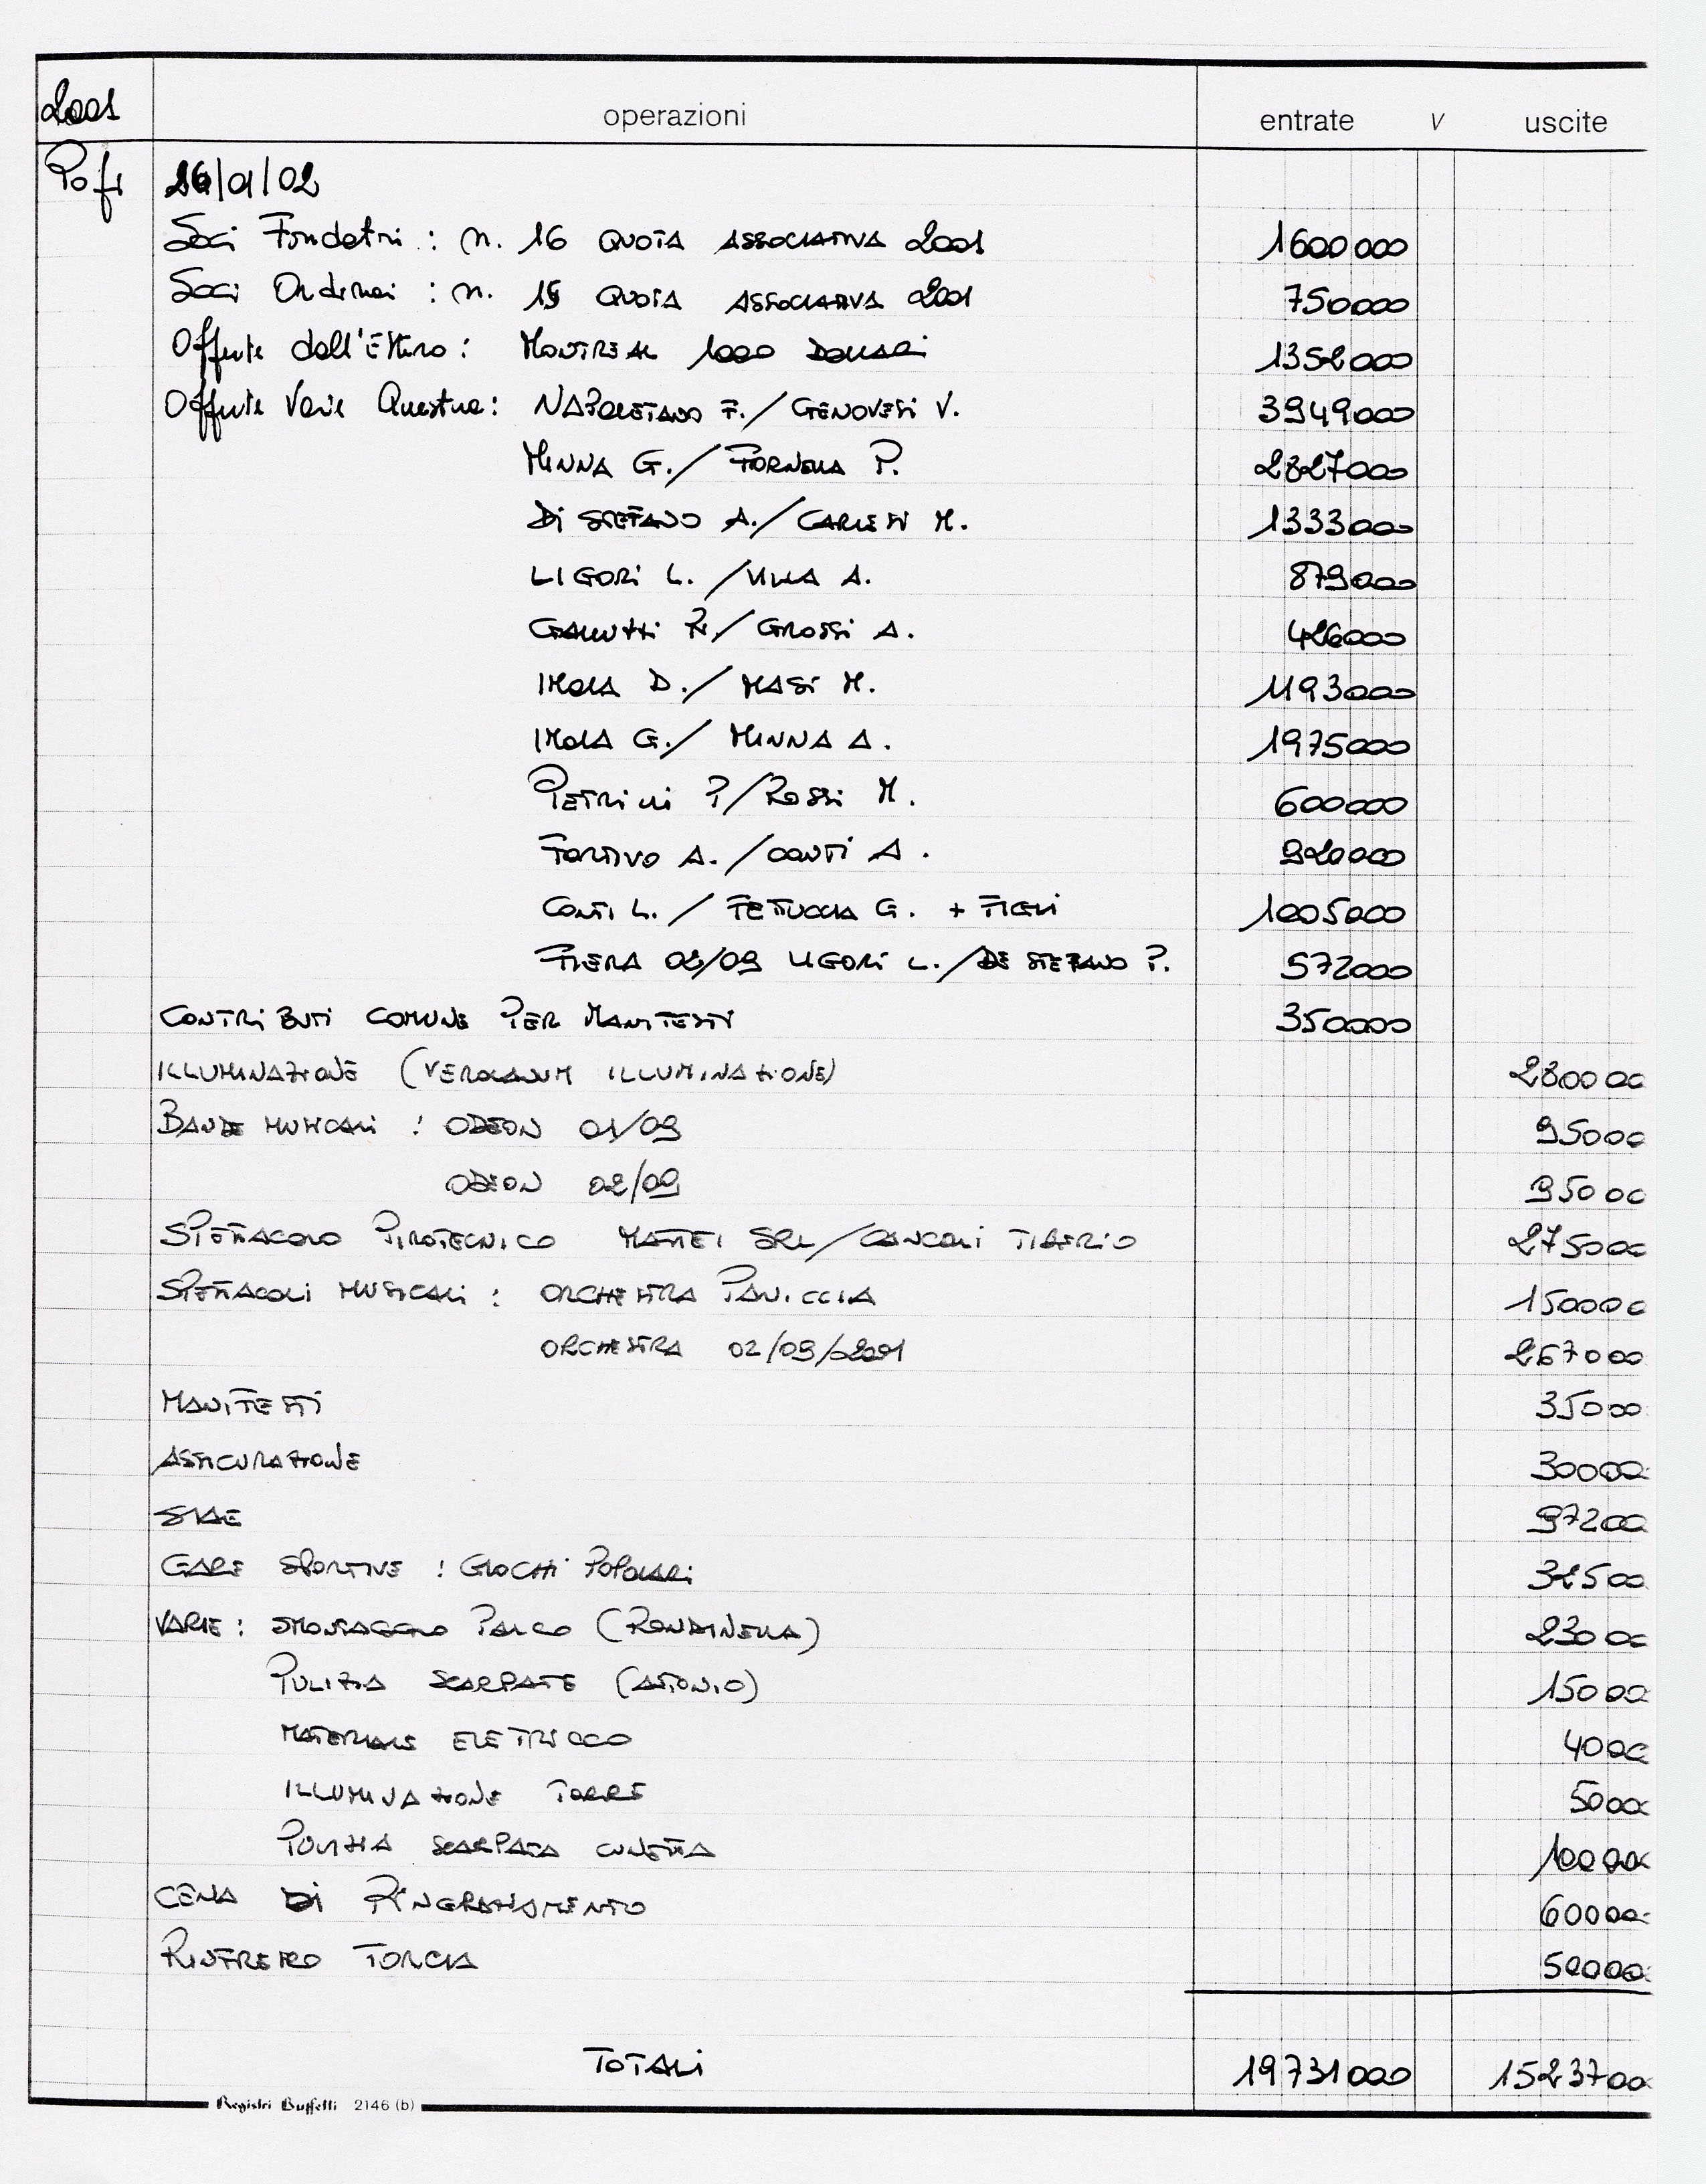 2001 operazioni entrate V uscite
Pofi 26/01/02
Soci Fondatori : n. 16 QUOTA ASSOCIATIVA 2001 1600000
Soci Ordinari : n. 15 QUOTA ASSOCIATIVA 2001 750000
Offerte dall'Estero : MONTREAL 1000 DOLLARI 1352000
Offerte Varie Questua : NAPOLETANO F. / GENOVESI V. 3949000
MINNA G. / FORNELLA P. 2827000
DI STEFANO A. / CARLESI M. 1333000
LIGORI L. / VILLA A. 879000
GALLUZZI / GROSSI A. 426000
IMOLA D. / MASI M. 1193000
IMOLA G. / MINNA A. 1975000
PETRINI P / ROSSI M. 600000
FORTIVO A. / CONTI A. 920000
CONTI L. / FETUCCIA G. + FIGLI 1005000
FIERA 02/09 LIGORI L. / DE STEFANO P. 572000
CONTRIBUTI COMUNE PER MANIFESTI 350000
ILLUMINAZIONE (VEROLANUM ILLUMINAZIONE) 280000
BANDE MUSICALI : ODEON 01/09 95000
ODEON 02/09 95000
SPETTACOLO PIROTECNICO MATTEI SRL / CANCOLI TIBERIO 275000
SPETTACOLI MUSICALI : ORCHESTRA PANICCIA 150000
ORCHESTRA 02/09/2001 267000
MANIFESTI 35000
ASSICURAZIONE 30000
SIAE 97200
GARE SPORTIVE : GIOCHI POPOLARI 32500
VARIE : SMONTAGGIO PALCO (RONDINELLA) 23000
PULIZIA SCARPATE (ANTONIO) 15000
MATERIALE ELETTRICO 4000
ILLUMINAZIONE TORRE 5000
PULIZIA SCARPATA CUNETTA 10000
CENA DI RINGRAZIAMENTO 60000
RINFRESCO TORCIA 50000
TOTALI 19731000 1523700
Registri Buffetti 2146 (b)